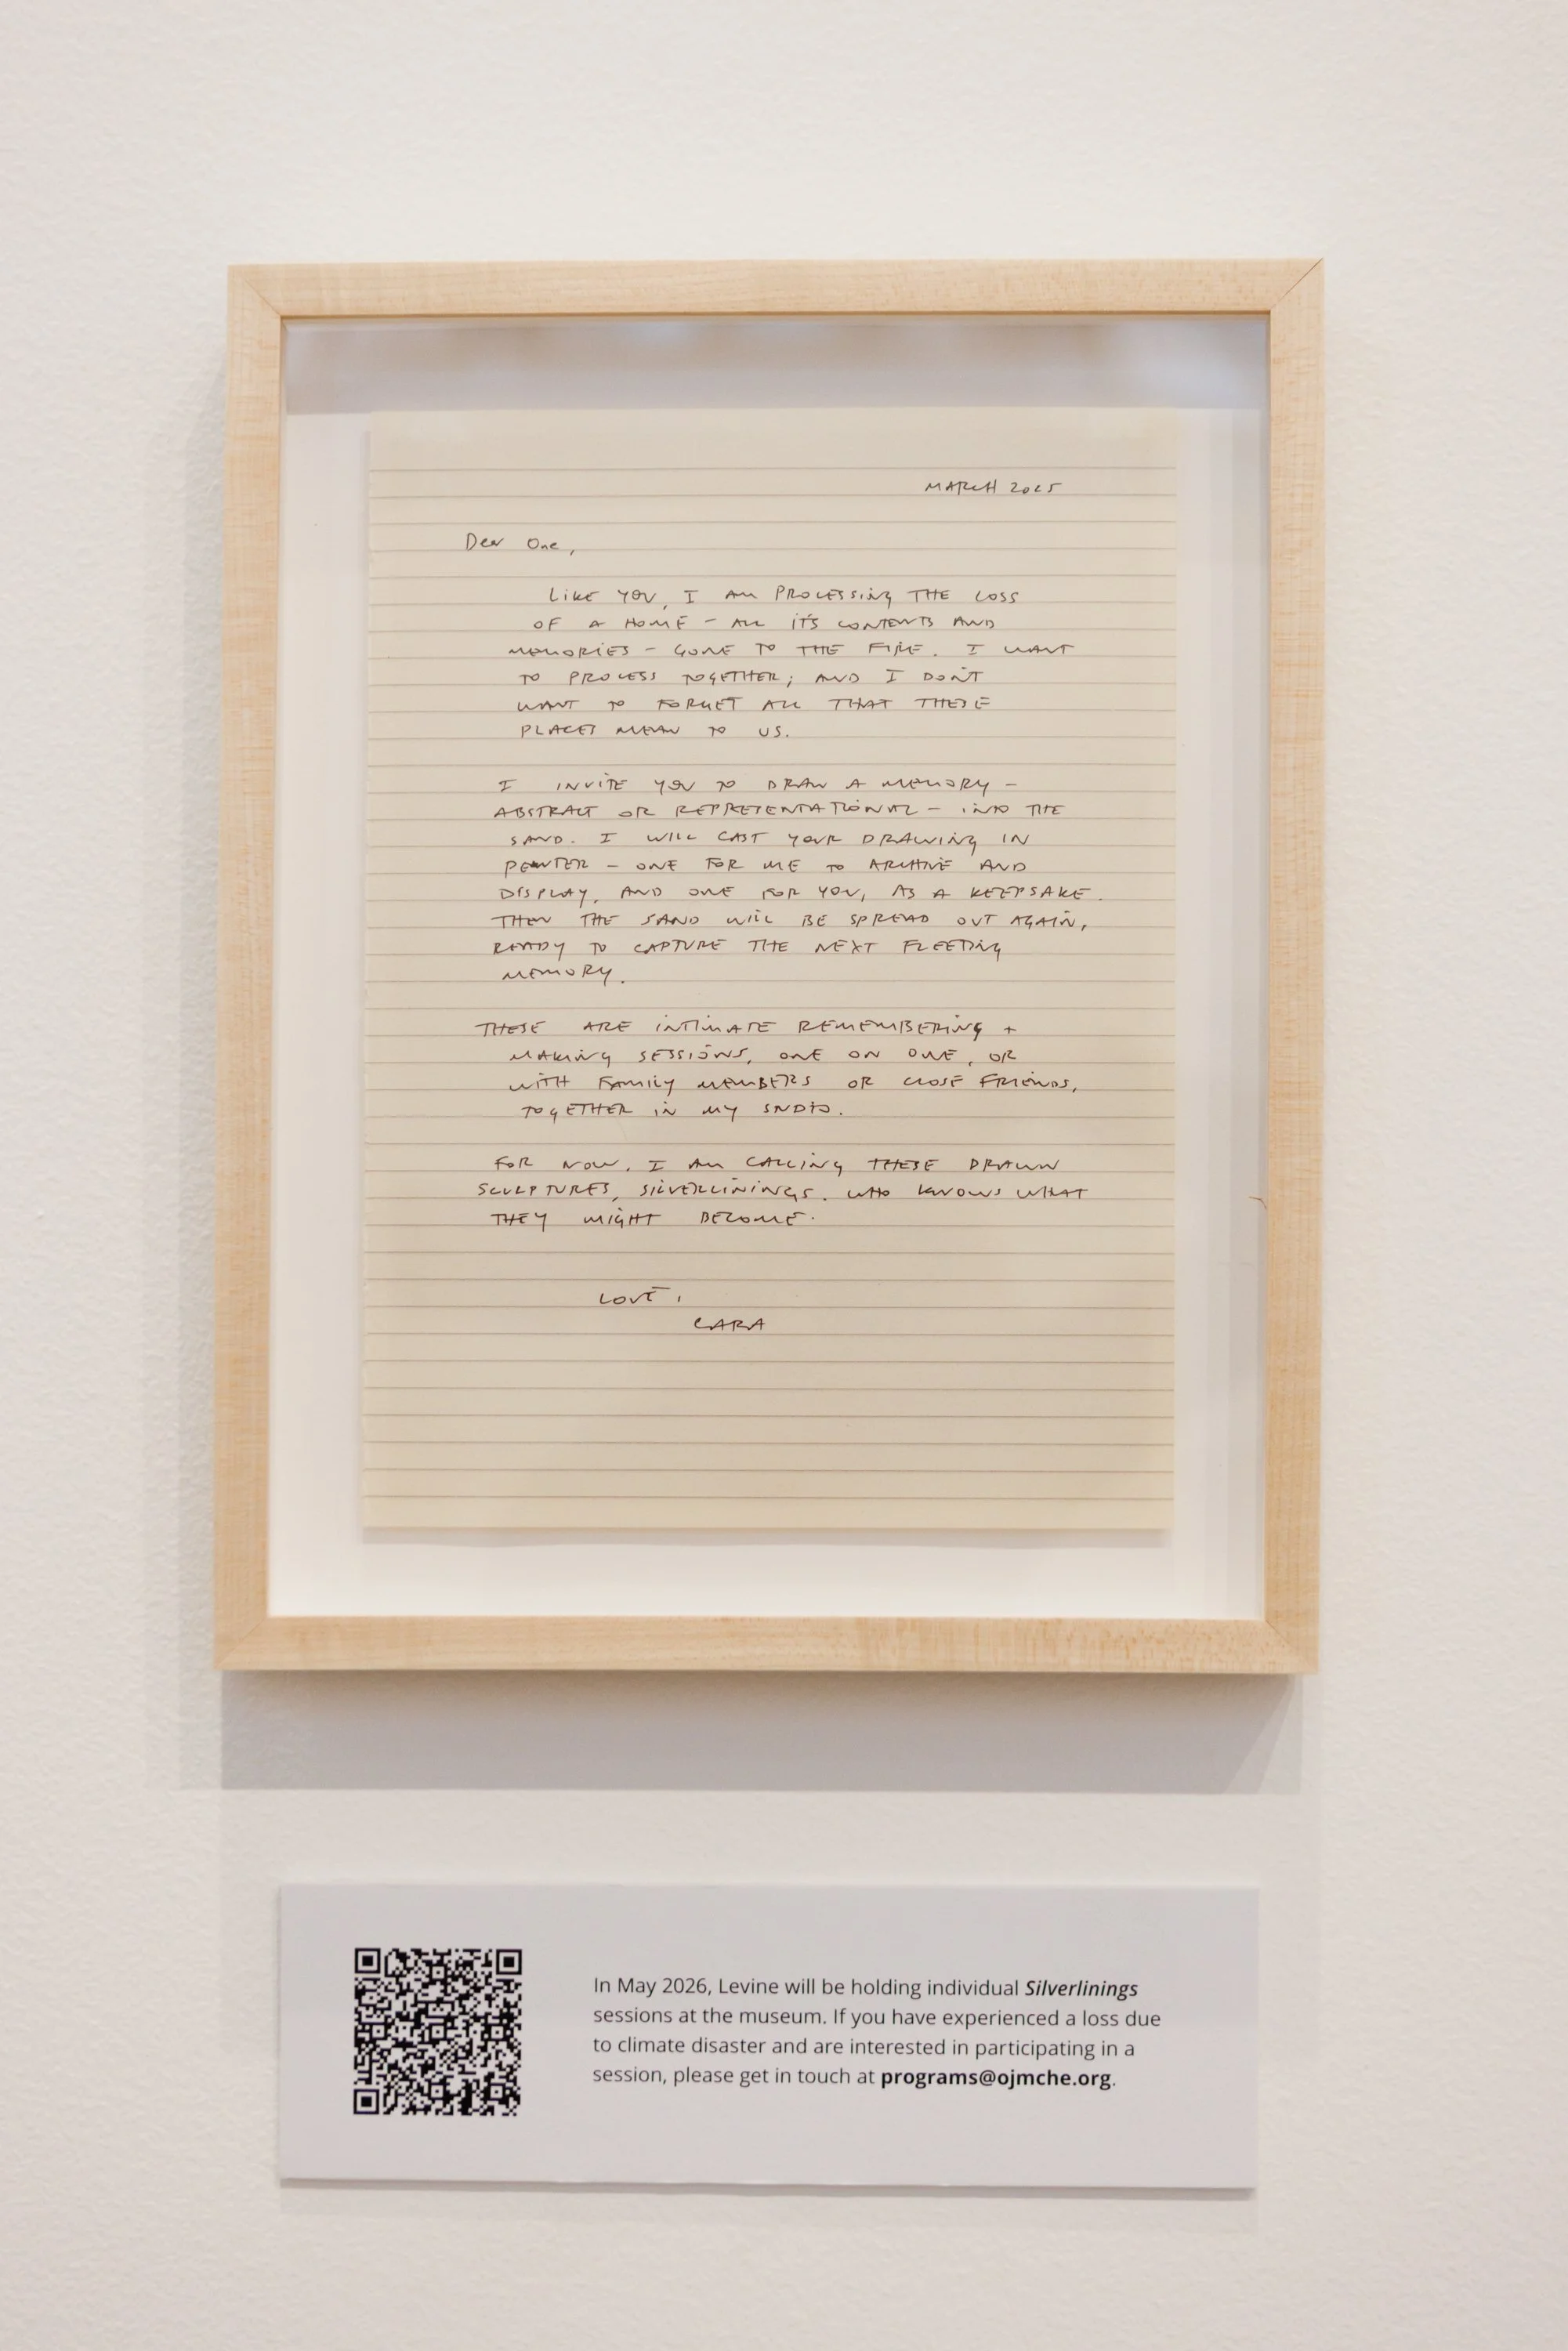 MARCH 2025
Dear One,
LIKE YOU, I AM PROCESSING THE LOSS
OF A HOME – ALL IT'S CONTENTS AND
MEMORIES – GONE TO THE FIRE. I WANT
TO PROCESS TOGETHER; AND I DON'T
WANT TO FORGET ALL THAT THESE
PLACES MEAN TO US.
I INVITE YOU TO DRAW A MEMORY –
ABSTRACT OR REPRESENTATIONAL – INTO THE
SAND. I WILL CAST YOUR DRAWING IN
PEWTER – ONE FOR ME TO ARCHIVE AND
DISPLAY, AND ONE FOR YOU, AS A KEEPSAKE.
THEN THE SAND WILL BE SPREAD OUT AGAIN,
READY TO CAPTURE THE NEXT FLEETING
MEMORY.
THESE ARE INTIMATE REMEMBERING +
MAKING SESSIONS, ONE ON ONE, OR
WITH FAMILY MEMBERS OR CLOSE FRIENDS,
TOGETHER IN MY STUDIO.
FOR NOW, I AM CALLING THESE DRAWN
SCULPTURES, SILVERLININGS. WHO KNOWS WHAT
THEY MIGHT BECOME.
LOVE,
CARA
In May 2026, Levine will be holding individual Silverlinings
sessions at the museum. If you have experienced a loss due
to climate disaster and are interested in participating in a
session, please get in touch at programs@ojmche.org.